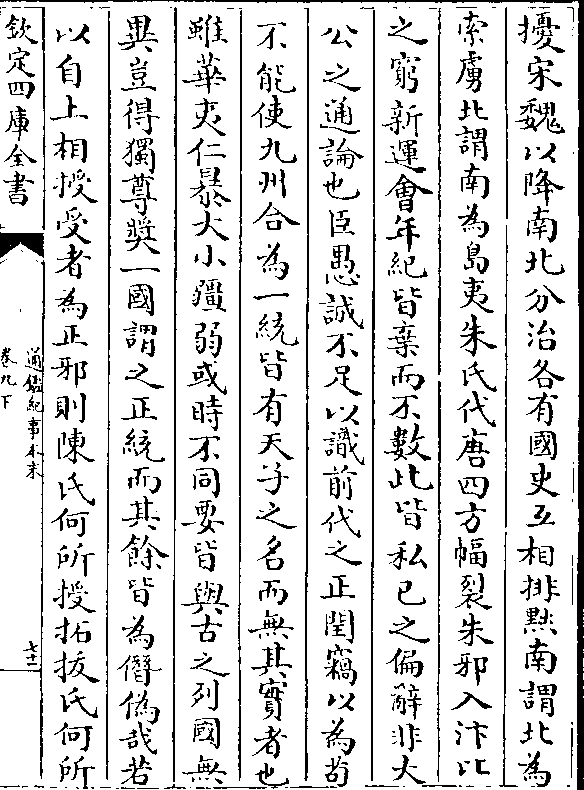 擾宋魏以降南北分治各有國史互相排黜南謂北為
索虜北謂南為島夷朱氏代唐四方幅裂朱邪入汴比
之窮新運會年紀皆棄而不數此皆私已之偏辭非大
公之通論也臣愚誠不足以識前代之正閏竊以為苟
不能使九州合為一統皆有天子之名而無其實者也
雖華夷仁暴大小彊弱或時不同要皆與古之列國無
異豈得獨尊奬一國謂之正統而其餘皆為僭偽哉若
以自上相授受者為正邪則陳氏何所授拓拔氏何所
欽定四庫全書
通鑑紀事本末
卷九下
七十二